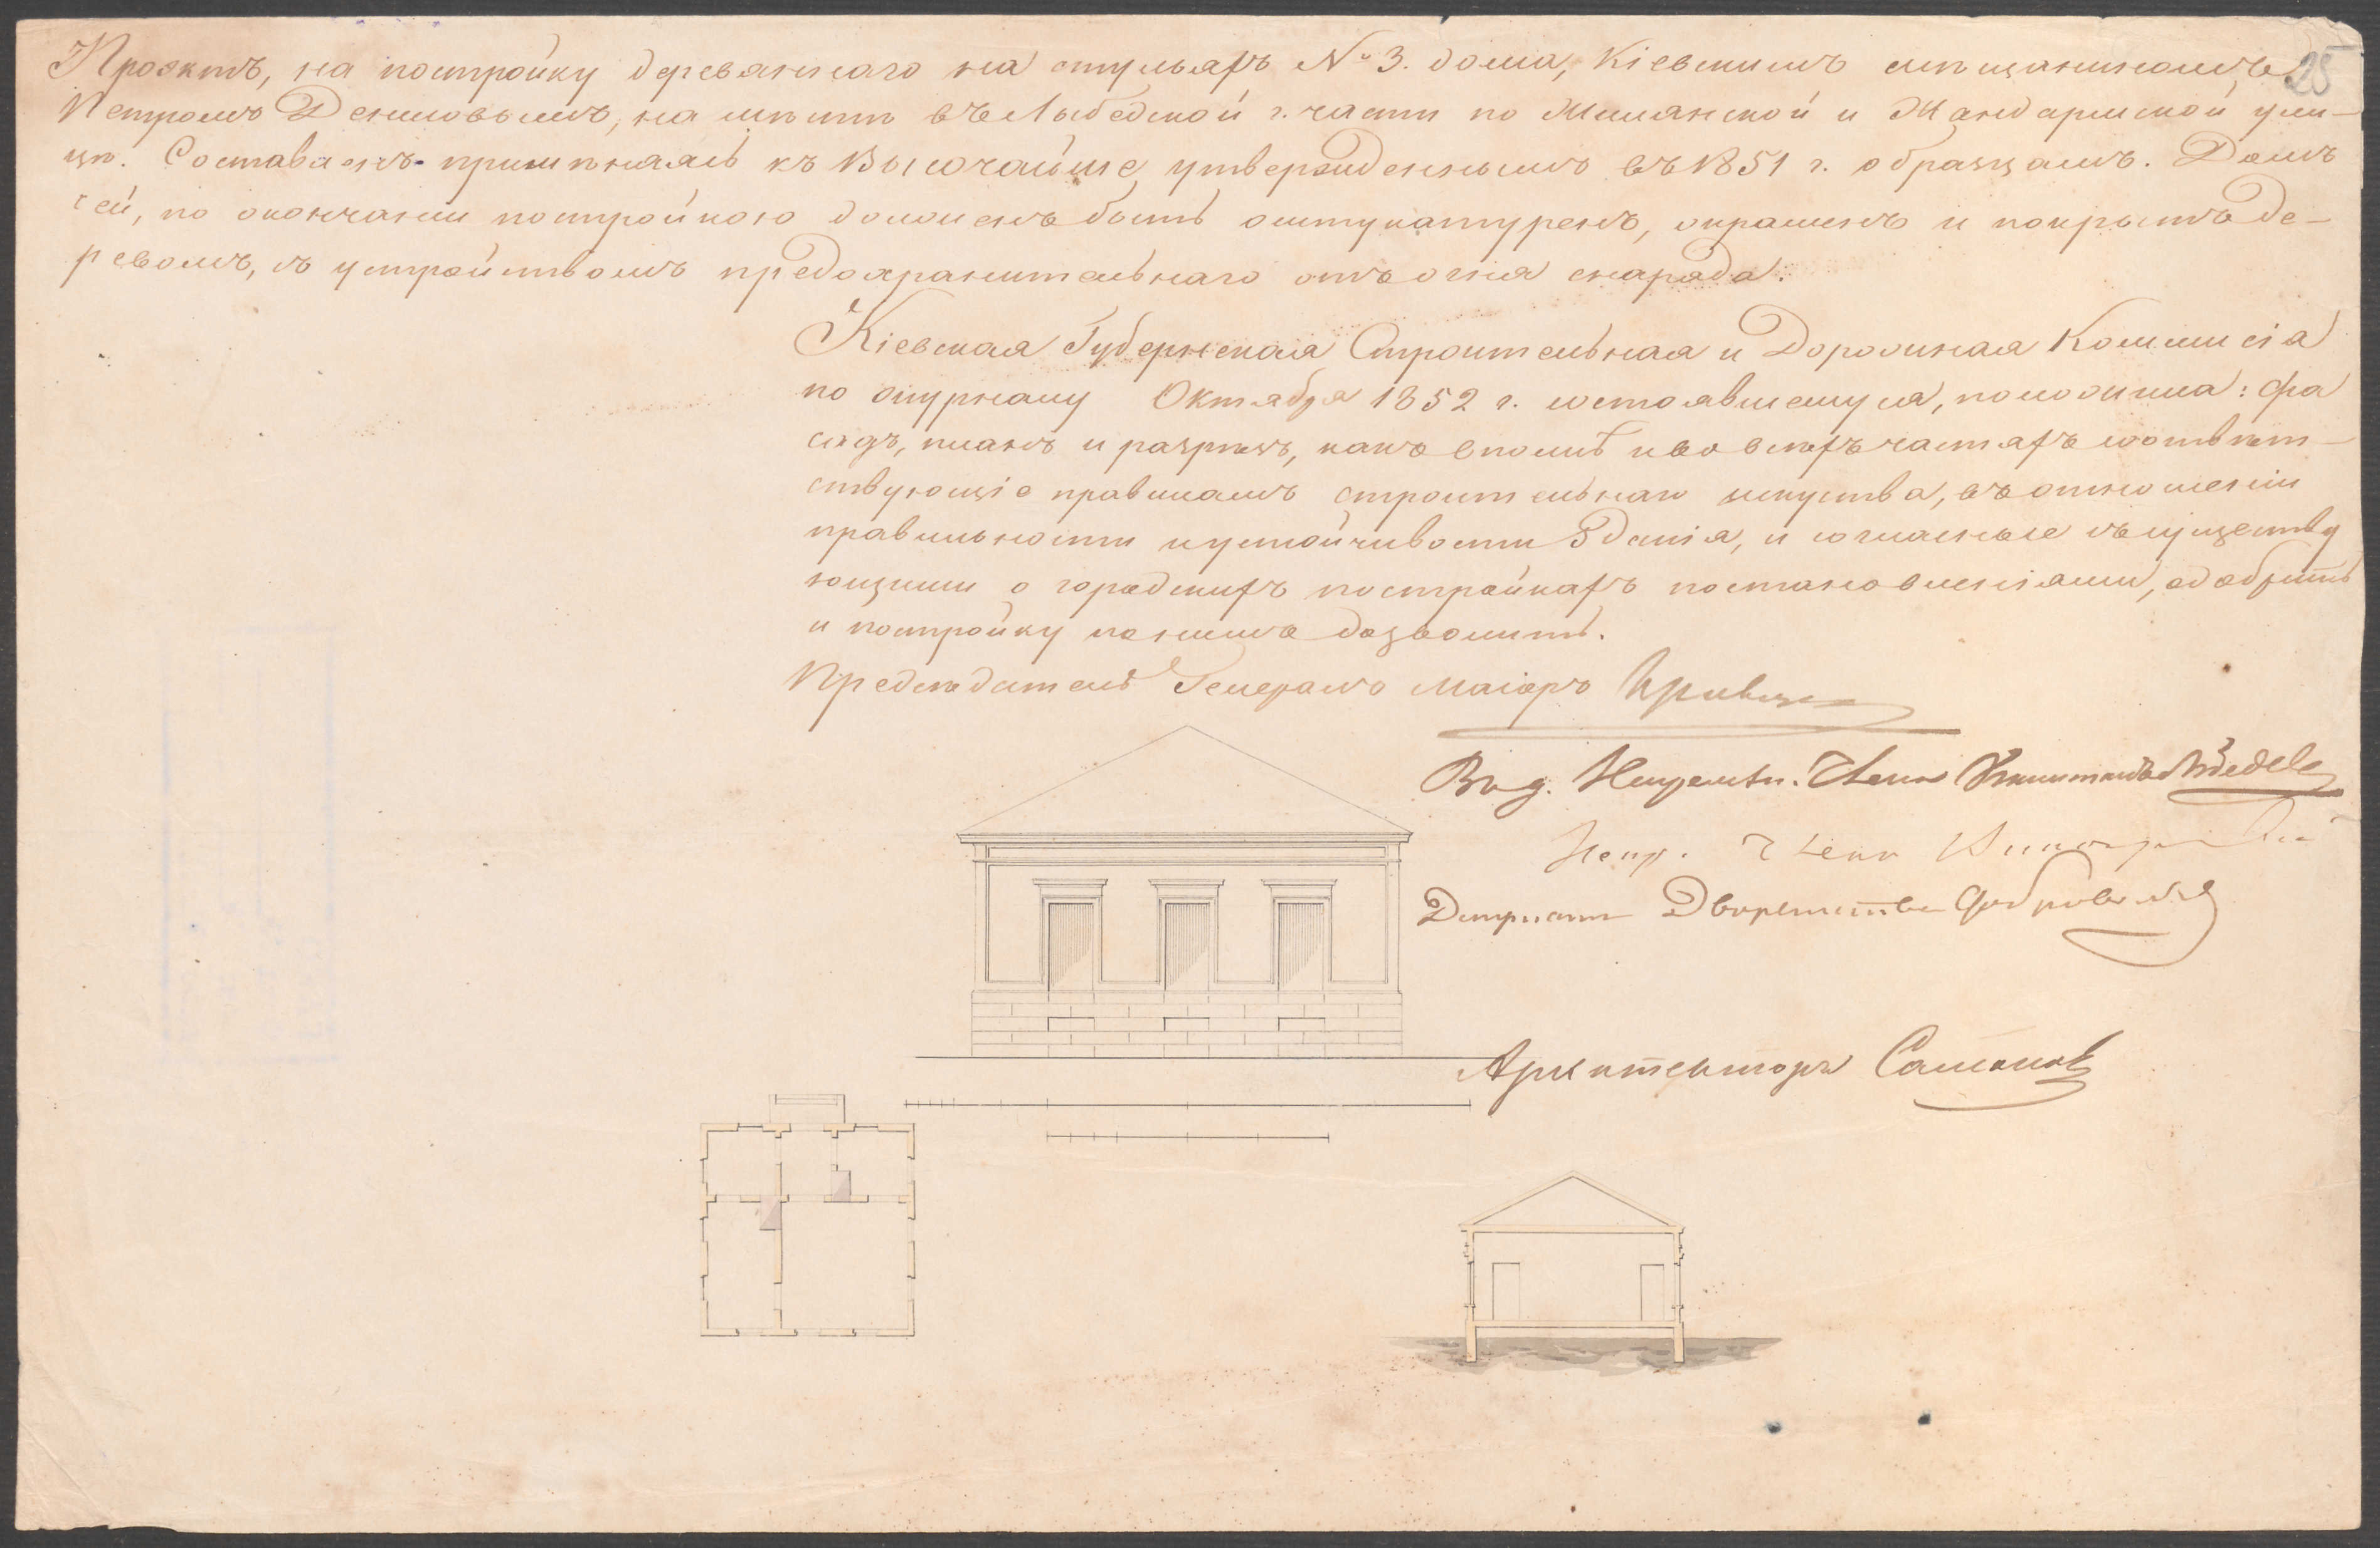 25
Проэктъ, на постройку деревяннаго на стульяхъ № 3. дома, Кіевскимъ мѣщаниномъ
Петромъ на мѣстѣ въ Лыбедской г. части по и Жандармской ули-
цѣ. Составленъ примѣняясь къ Высочайше утвержденнымъ въ 1851 г. образцамъ. Домъ
сей, по окончаніи постройкою долженъ быть оштукатуренъ, окрашенъ и покрытъ де-
ревомъ, съ устройствомъ предохранительнаго отъ огня снаряда.
Кіевская Губернская Строительная и Дорожная Коммисія
по журналу Октября 1852 г. состоявшемуся, положила: фа
садъ, планъ и разрѣзъ, какъ вполнѣ и во всѣхъ частяхъ соотвѣт-
ствующіе правиламъ строительнаго искуства, въ отношеніи
правильности и устойчивости зданія, и согласные съ существу
ющими о городскихъ постройкахъ постановленіями, одобрить
и постройку по нимъ дозволить.
Предсѣдатель Генералъ Маіоръ
Членъ
Членъ
Депутатъ Дворянства
Архитекторъ